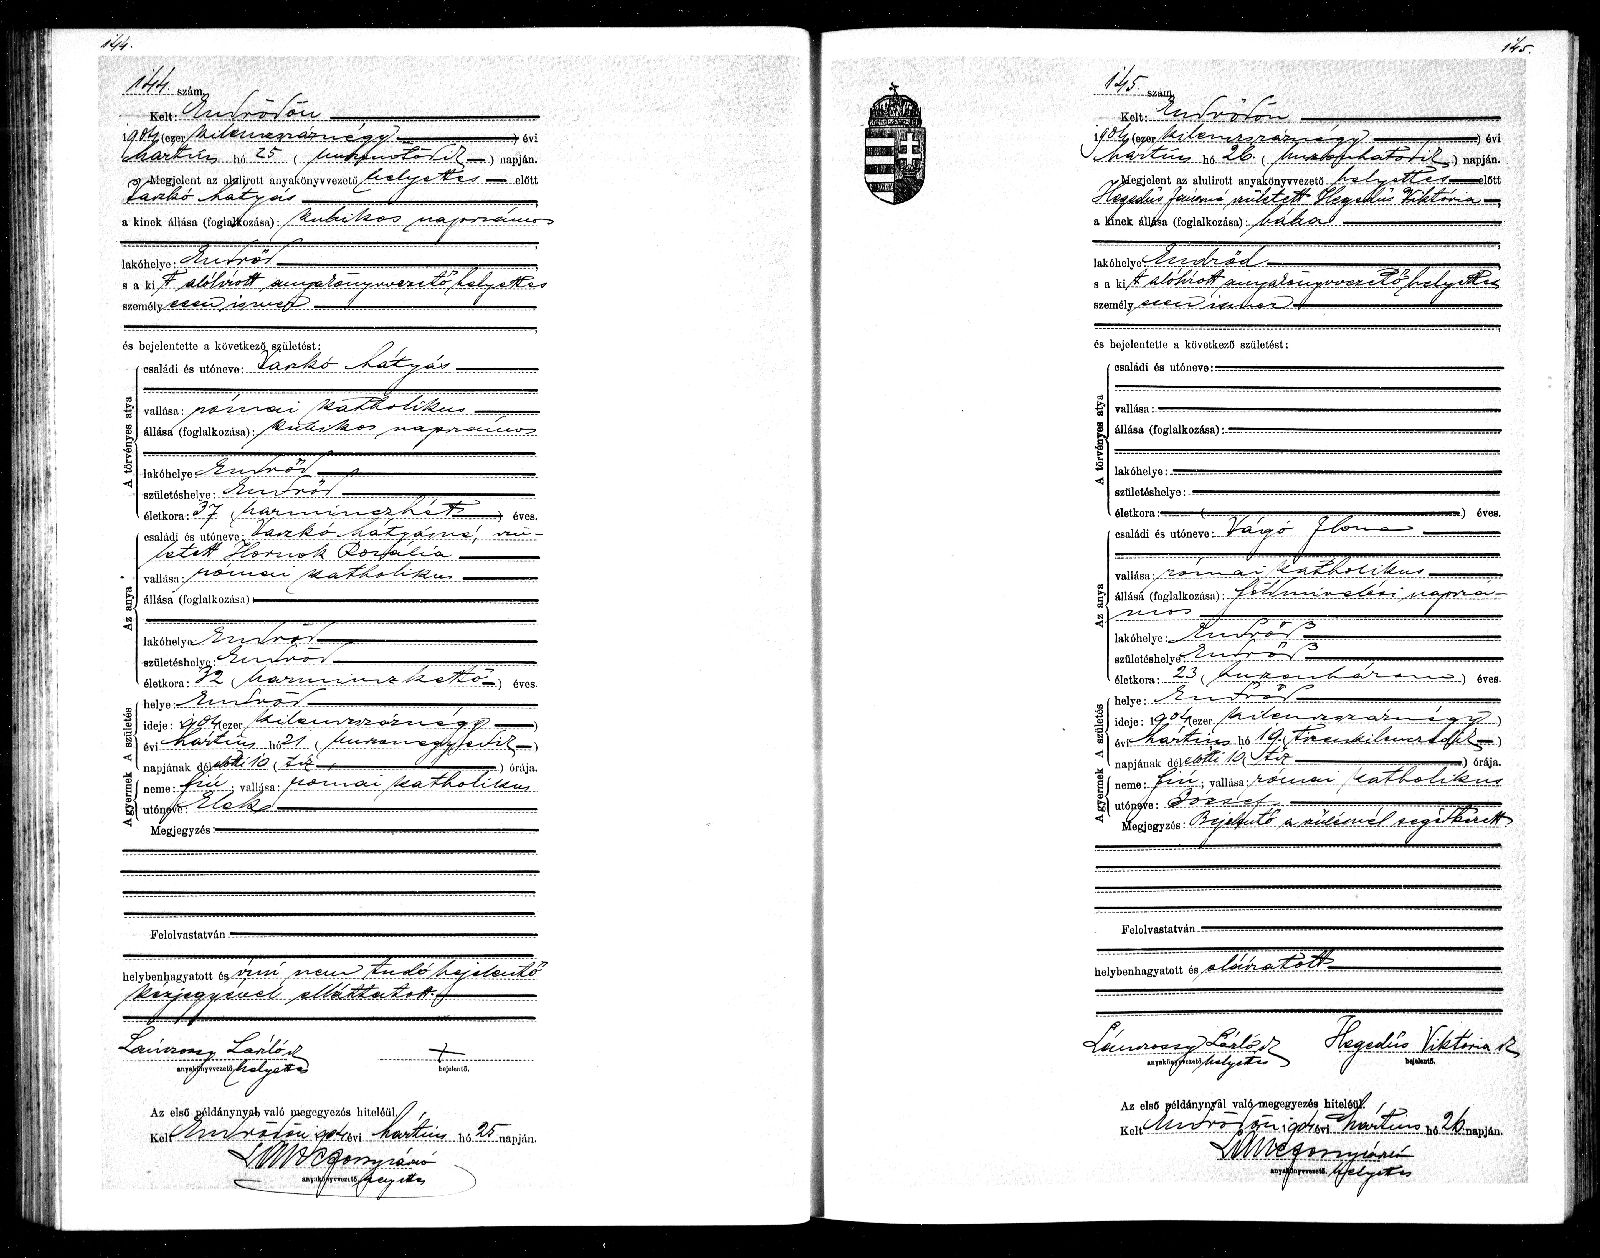 144.
144 szám.
Kelt: Endrődön
1904 (ezer kilenczszáznégy) évi
Mártius hó 25 (huszonötödik) napján.
Megjelent az alulirott anyakönyvvezető helyettes előtt
Varkó Mátyás
a kinek állása (foglalkozása): kubikos napszámos
lakóhelye: Endrőd
s a kit alólírott anyakönyvvezető helyettes
személyesen ismer
és bejelentette a következő születést:
A törvényes atya
családi és utóneve: Varkó Mátyás
vallása: római katholikus
állása (foglalkozása): kubikos napszámos
lakóhelye Endrőd
születéshelye: Endrőd
életkora: 37 (harminczhét) éves.
Az anya
családi és utóneve: Varkó Mátyásné, szü-
letett Hornok Rozália
vallása: római katholikus
állása (foglalkozása)
lakóhelye Endrőd
születéshelye: Endrőd
életkora: 32 (harminczkettő) éves.
A születés
helye: Endrőd
ideje: 1904 (ezer kilenczszáznégy)
évi Mártius hó 21 (huszonegyedik)
napjának délelőtti 10 (tíz) órája.
A gyermek
neme: fiú; vallása: római katholikus
utóneve: Elek
Megjegyzés:
Felolvastatván
helybenhagyatott és írni nem tudó bejelentő
kézjegyével elláttatott.
László
anyakönyvvezető helyettes
+
bejelentő.
Az első példánynyal való megegyezés hiteléül.
Kelt Endrődön 1904 évi Mártius hó 25 napján.
anyakönyvvezető helyettes
145.
145 szám.
Kelt: Endrődön
1904 (ezer kilenczszáznégy) évi
Mártius hó 26. (huszonhatodik) napján.
Megjelent az alulirott anyakönyvvezető helyettes előtt
Hegedüs Jánosné született Hegedüs Viktória
a kinek állása (foglalkozása): bába
lakóhelye Endrőd
s a kit alólírott anyakönyvvezető helyettes
személyesen ismer
és bejelentette a következő születést:
A törvényes atya
családi és utóneve:
vallása:
állása (foglalkozása):
lakóhelye:
születéshelye:
életkora: ( ) éves.
Az anya
családi és utóneve: Vágó Ilona
vallása: római katholikus
állása (foglalkozása): földmívelési napszá-
mos
lakóhelye: Endrőd
születéshelye: Endrőd
életkora: 23 (huszonhárom) éves.
A születés
helye: Endrőd
ideje: 1904 (ezer kilenczszáznégy)
évi Mártius hó 19 (tizenkilenczedik)
napjának délelőtti 10 (tíz) órája.
A gyermek
neme: fiú; vallása: római katholikus
utóneve: József
Megjegyzés: Bejelentő a szülésnél segédkezett
Felolvastatván
helybenhagyatott és aláíratott
László
anyakönyvvezető helyettes
Hegedüs Viktória
bejelentő.
Az első példánynyal való megegyezés hiteléül.
Kelt Endrődön 1904 évi Mártius hó 26 napján.
anyakönyvvezető helyettes